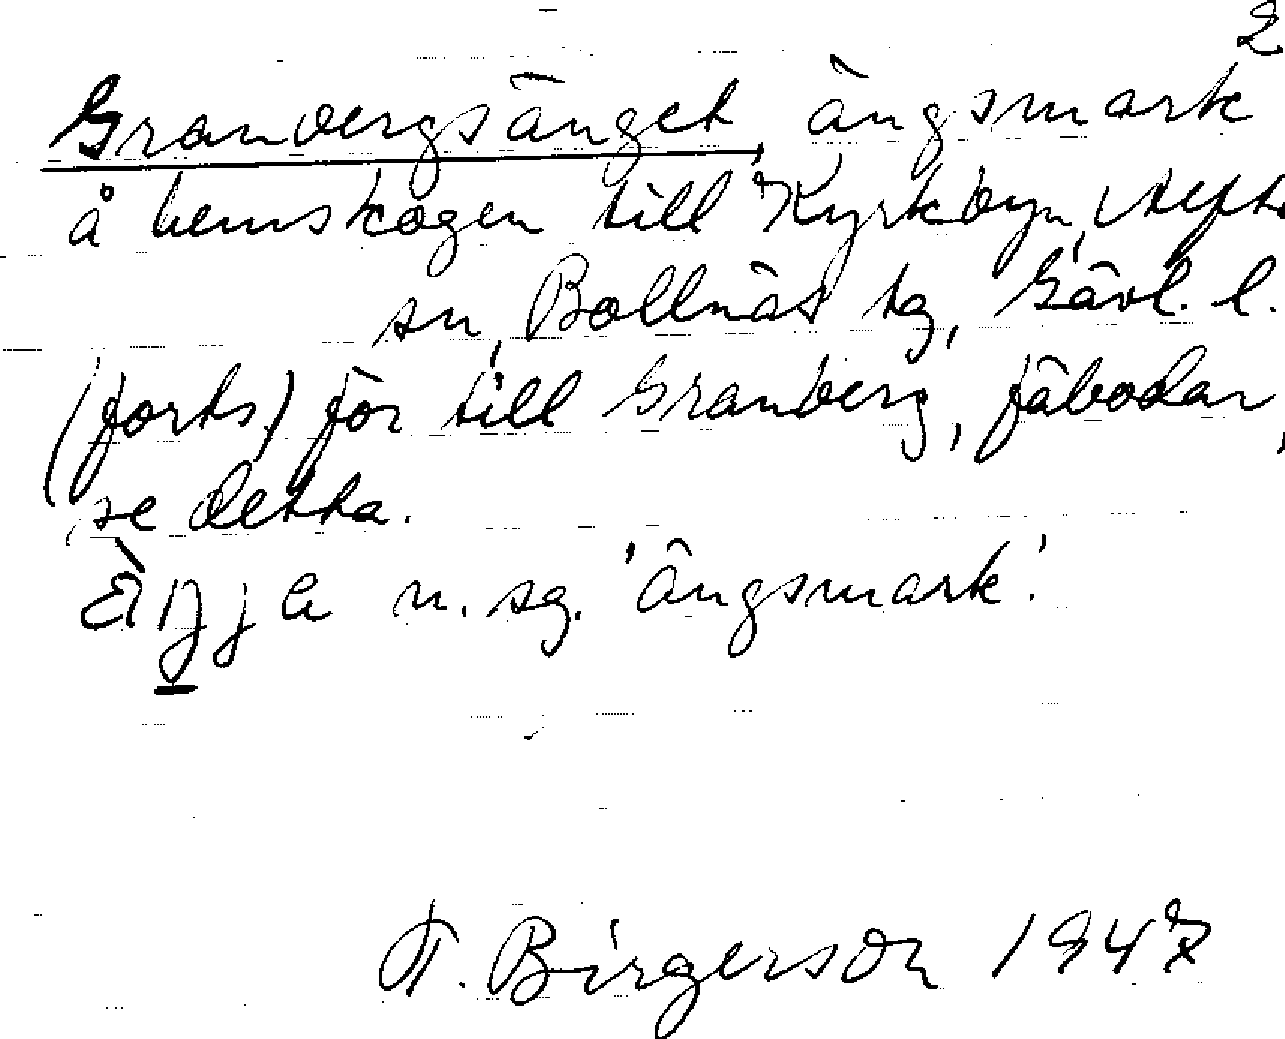 2
Granbergsänget, ängsmark
å hemskogen till Kyrkbyn, Alfta
sn, Bollnäs tg, Gävl. l.
(forts) för till Granberg, fäbodar,
se detta.
n. sg. 'ängsmark'.
F. Birgerson 1947